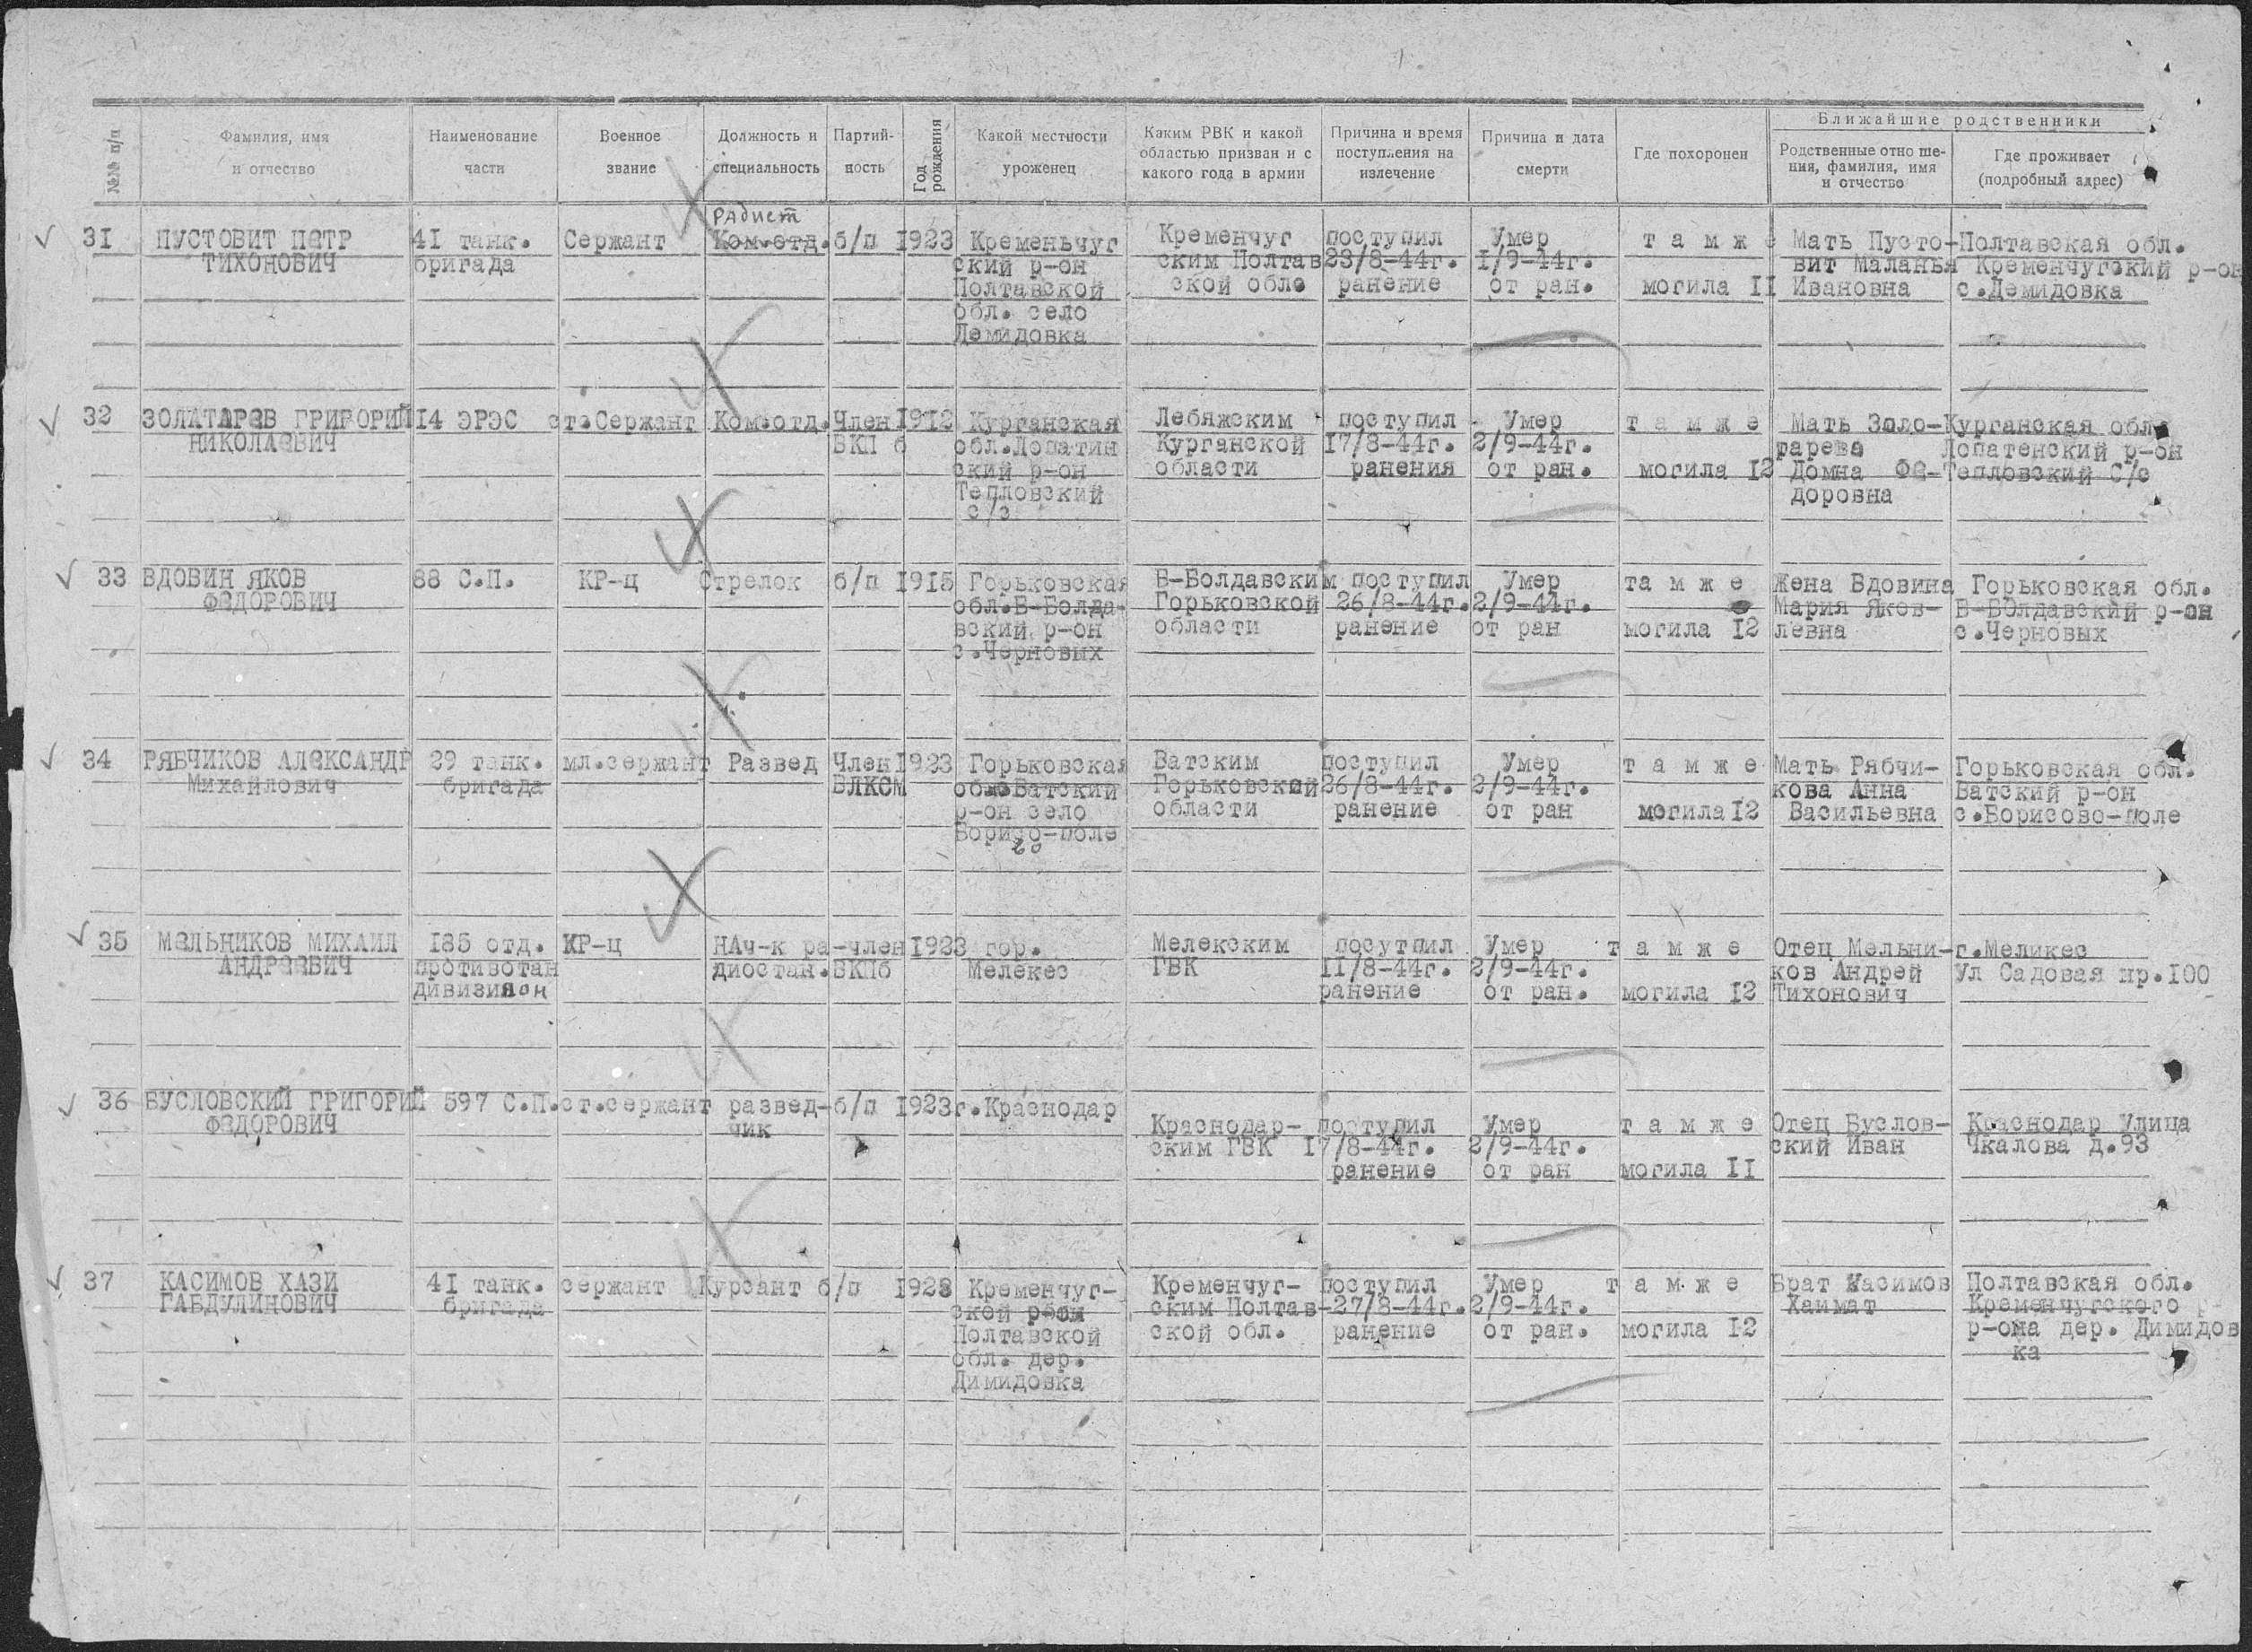 №№ п/п
Фамилия, имя
и отчество
Наименование
части
Военное
звание
Должность и
специальность
Партий-
ность
Год
рождения
Какой местности
уроженец
Каким РВК и какой
областью призван и с
какого года в армии
Причина и время
поступления на
излечение
Причина и дата
смерти
Где похоронен
Ближайшие родственники
Родственные отно ше-
ния, фамилия, имя
и отчество
Где проживает
(подробный адрес)
31
ПУСТОВИТ ПЕТР
ТИХОНОВИЧ
41 танк.
бригада
Сержант
Радист
Ком.отд.
б/п
1923
Кременьчуг
ский р-он
Полтавской
обл. село
Демидовка
Кременчуг
ским Полтав
ской обл.
поступил
23/8-44г.
ранение
Умер
1/9-44г.
от ран.
т а м ж е
могила II
Мать Пусто-
вит Маланья
Ивановна
Полтавская обл.
Кременчугский р-он
с.Демидовка
32
ЗОЛАТАРЕВ ГРИГОРИЙ
НИКОЛАЕВИЧ
14 ЭРЭС
ст.Сержант
Ком.отд.
Член
ВКП б
1912
Курганская
обл.Лопатин
ский р-он
Тепловский
с/с
Лебяжским
Курганской
области
поступил
17/8-44г.
ранения
Умер
2/9-44г.
от ран.
т а м ж е
могила 12
Мать Золо-
тарева
Домна Фе-
доровна
Курганская обл.
Лопатенский р-он
Тепловский С/с
33
ВДОВИН ЯКОВ
ФЕДОРОВИЧ
88 С.П.
КР-ц
Стрелок
б/п
1915
Горьковская
обл.Б-Болда-
вский р-он
с.Черновых
Б-Болдавским
Горьковской
области
поступил
26/8-44г.
ранение
Умер
2/9-44г.
от ран
та м ж е
могила 12
Жена Вдовина
Мария Яков-
левна
Горьковская обл.
Б-Болдавский р-он
с.Черновых
34
РЯБЧИКОВ АЛЕКСАНДР
Михайлович
29 танк.
бригада
мл.сержант
Развед
Член
ВЛКСМ
1923
Горьковская
обл.Ватский
р-он село
Борисо-поле
во
Ватским
Горьковской
области
поступил
26/8-44г.
ранение
Умер
2/9-44г.
от ран
т а м ж е
могила 12
Мать Рябчи-
кова Анна
Васильевна
Горьковская обл.
Ватский р-он
с.Борисово-поле
35
МЕЛЬНИКОВ МИХАИЛ
АНДРЕЕВИЧ
185 отд.
противотан
дивизион
КР-ц
НАч-к ра-
диостан.
член
ВКПб
1923
гор.
Мелекес
Мелекским
ГВК
посутпил
11/8-44г.
ранение
Умер
2/9-44г.
от ран.
т а м ж е
могила 12
Отец Мельни-
ков Андрей
Тихонович
г.Меликес
Ул Садовая пр.100
36
БУСЛОВСКИЙ ГРИГОРИЙ
ФЕДОРОВИЧ
597 С.П.
ст.сержант
развед-
чик
б/п
1923
г.Краснодар
Краснодар-
ским ГВК
поступил
17/8-44г.
ранение
Умер
2/9-44г.
от ран
т а м ж е
могила II
Отец Буслов-
ский Иван
Краснодар Улица
Чкалова д.93
37
КАСИМОВ ХАЗИ
ГАБДУЛИНОВИЧ
41 танк.
бригада
сержант
Курсант
б/п
1923
Кременчуг-
ской р-он
Полтавской
обл. дер.
Димидовка
Кременчуг-
ским Полтав-
ской обл.
поступил
27/8-44г.
ранение
Умер
2/9-44г.
от ран.
т а м ж е
могила 12
Брат Касимов
Хаимат
Полтавская обл.
Кременчугского
р-она дер. Димидов
ка